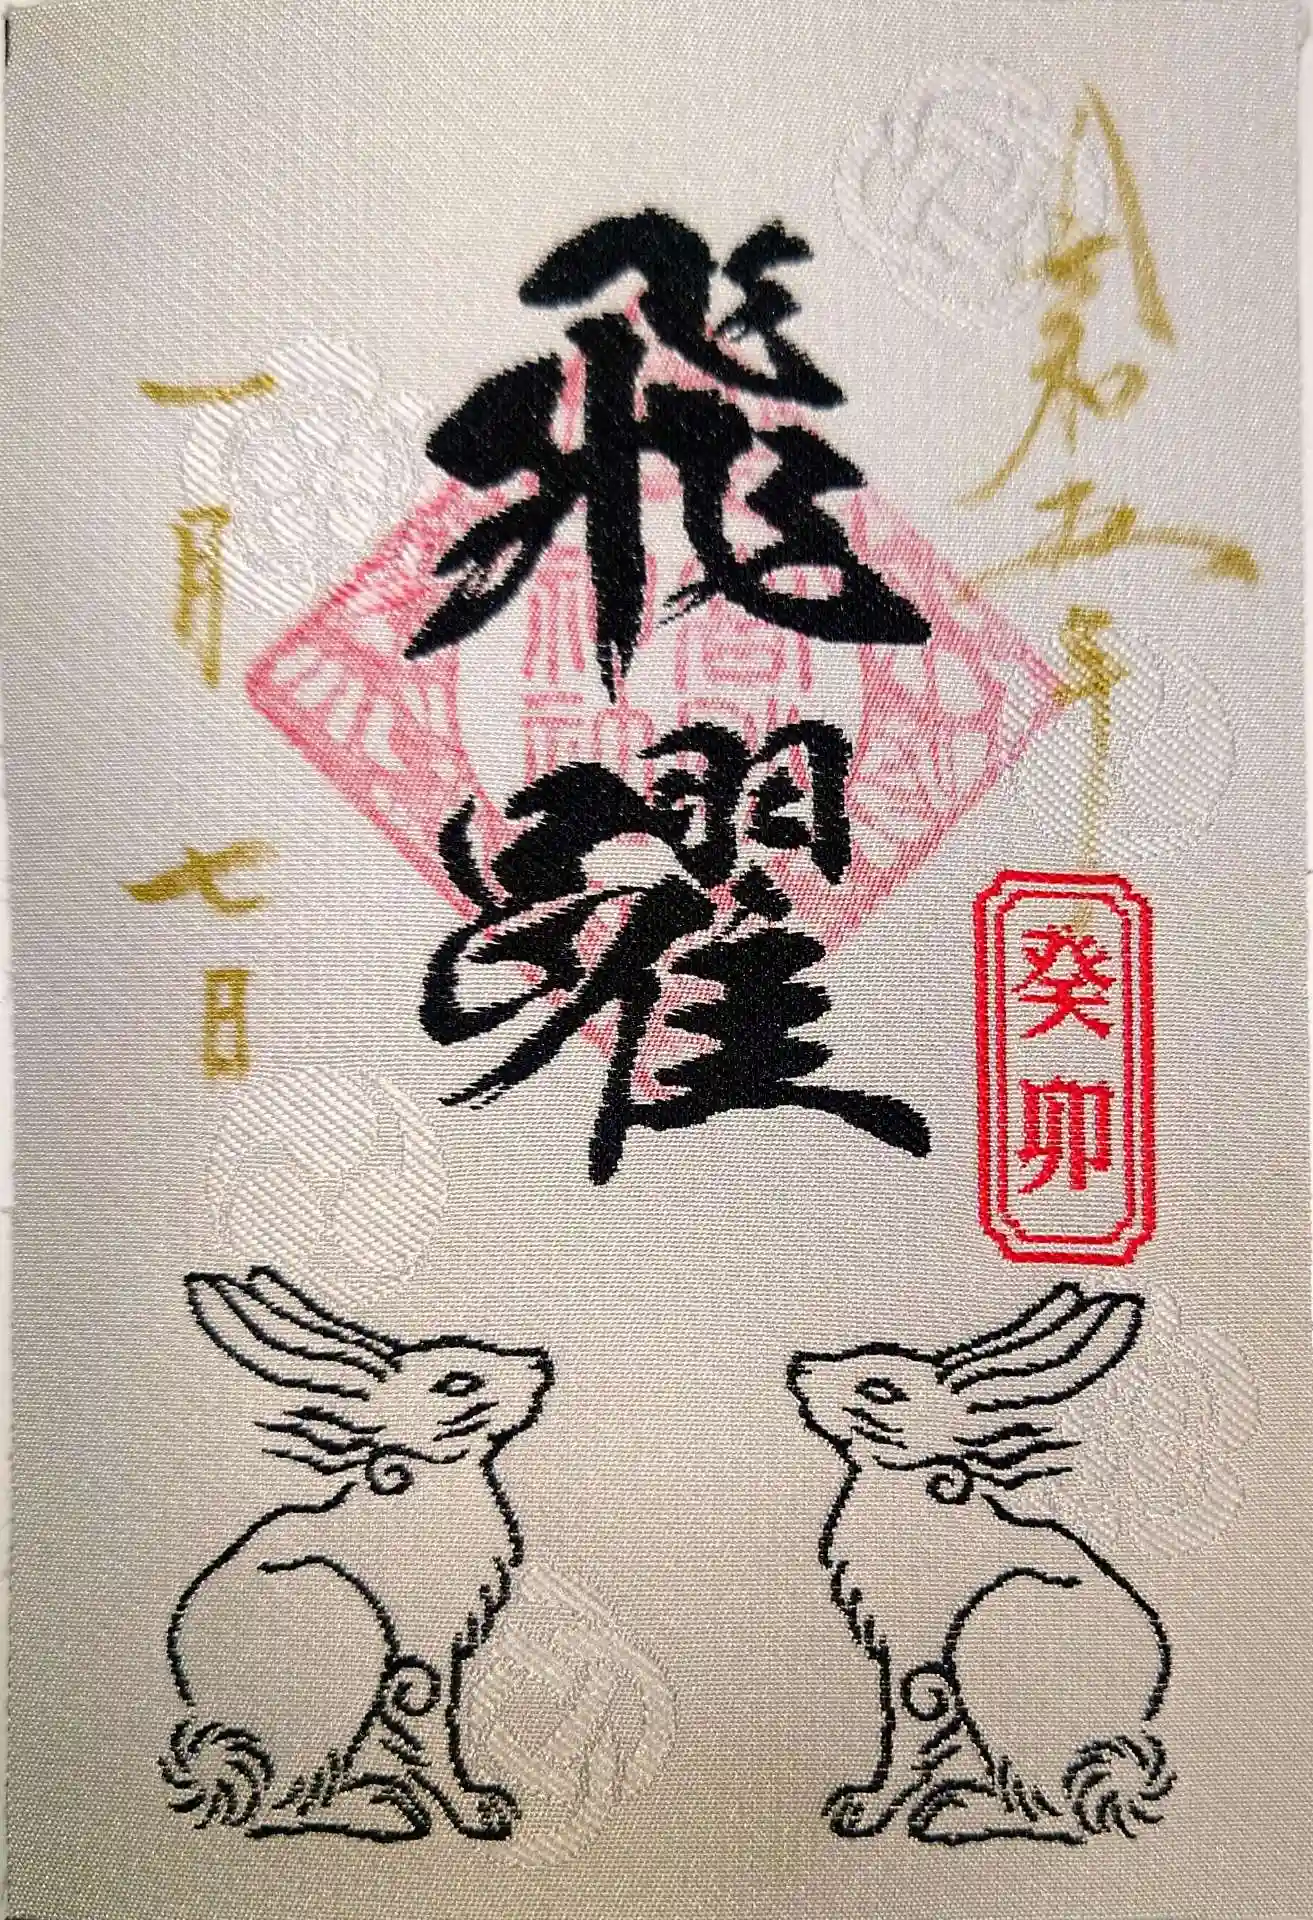 令和五年
癸卯
飛躍
一月七日